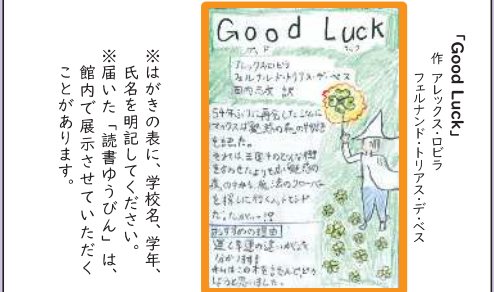 「Good Luck」
作 アレックス・ロビラ
フェルナンド・トリアス・デ・ベス
Good Luck
グッド ラック
アレックス・ロビラ
フェルナンド・トリアス・デ・ベス
田内志文 訳
54年ぶりに再会した
マックスは魅惑の森の
を語った。
それは、王国すの
魔法のクローバー
を探しに行く
おすすめの理由
運と幸運の違いがとても
分かります!
私はこの本を読んで
うと思いました。
※はがきの表に、学校名、学年、
氏名を明記してください。
※届いた「読書ゆうびん」は、
館内で展示させていただく
ことがあります。